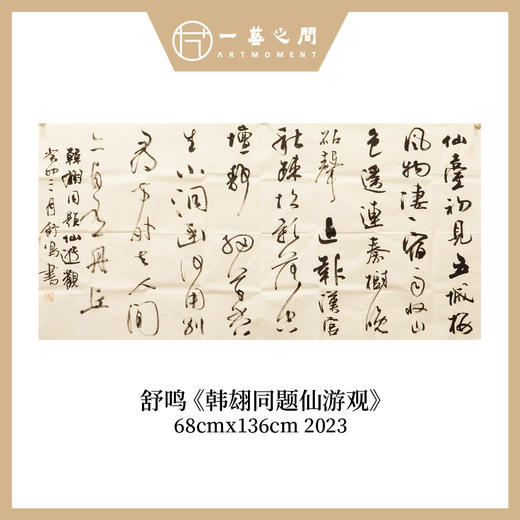 一藝之間
ARTMOMENT
仙臺初見五城樓
風物凄々宿雨收山
色遥連秦樹晚
砧聲近報漢宮
秋疎松影落空
壇靜細草香
生小洞幽何用別
尋方外去人間
亦自有丹丘
韓翃同題仙遊觀
癸卯二月舒鳴書
舒鸣《韩翃同题仙游观》
68cmx136cm 2023